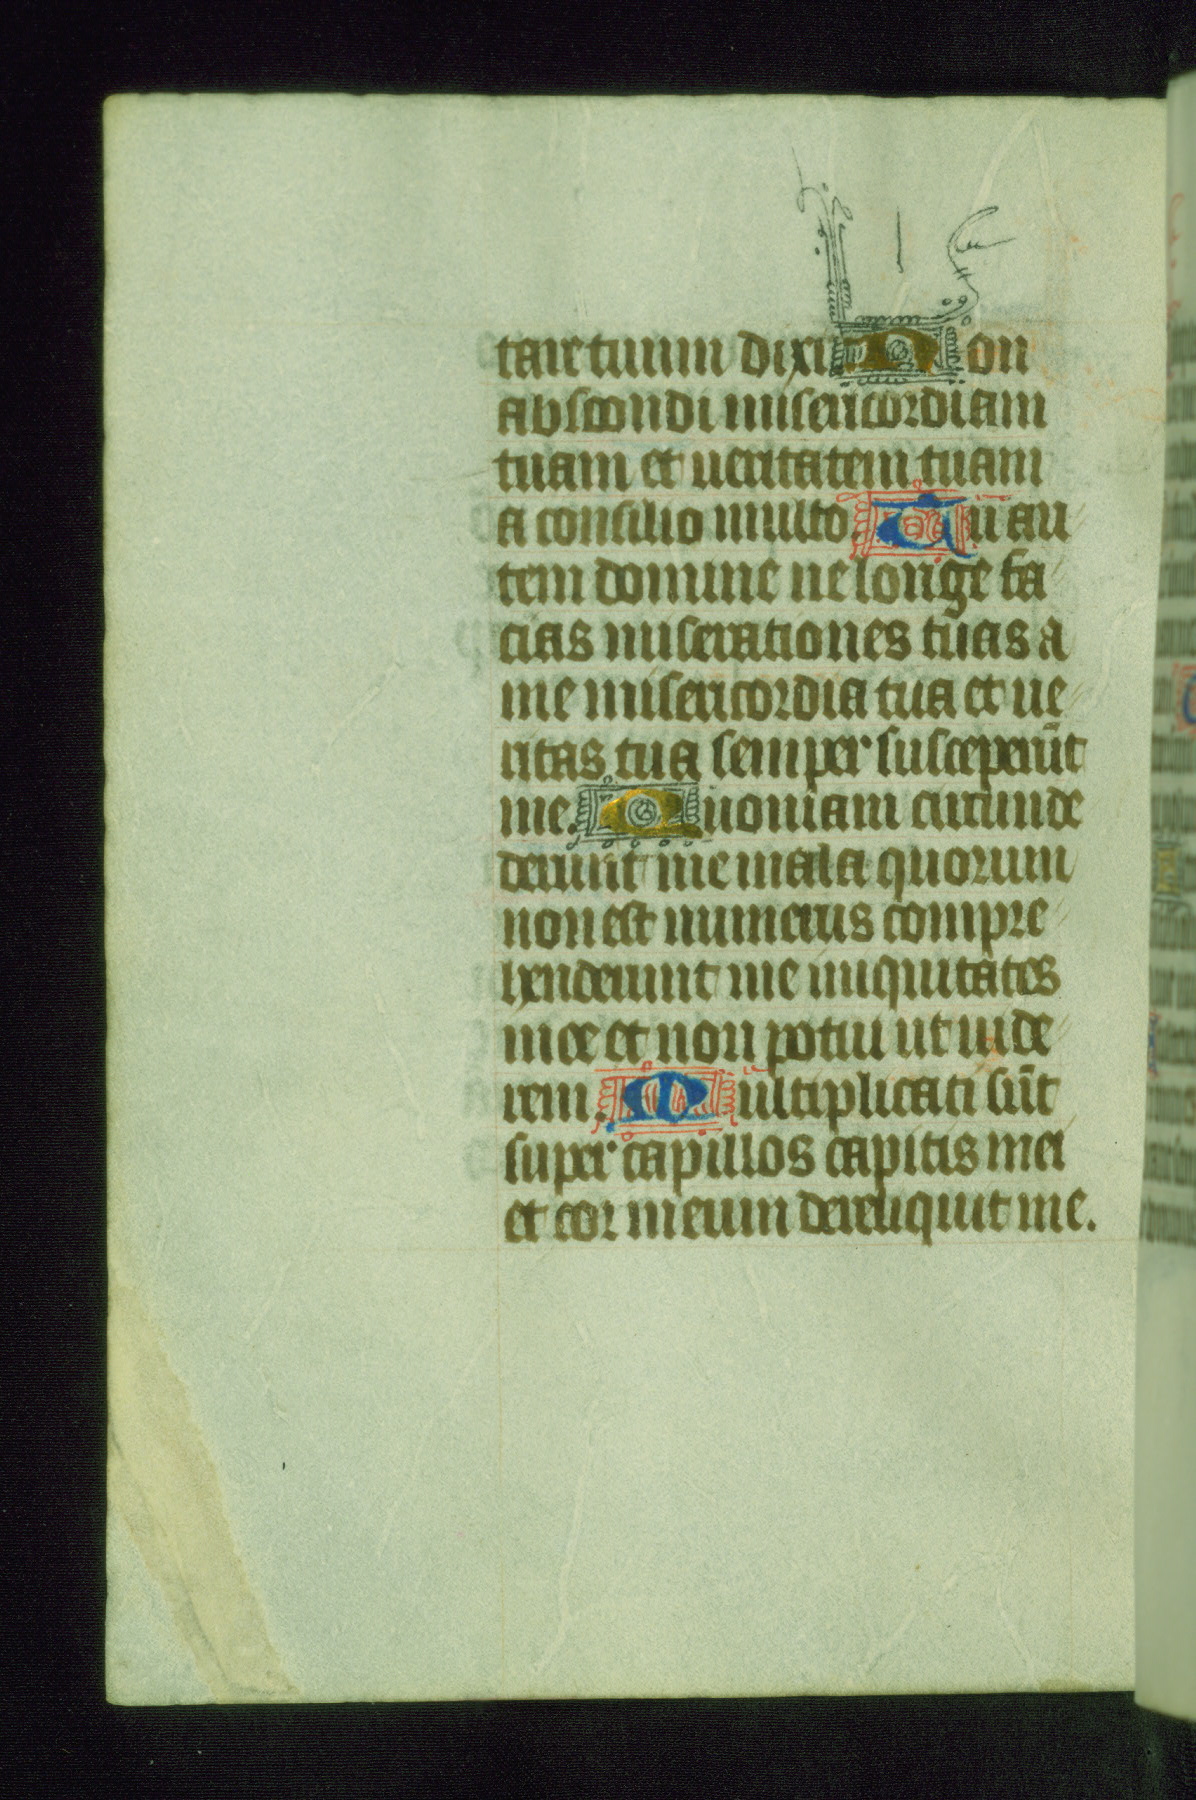 tare tuum dixi Non
abscondi misericordiam
tuam et ueritatem tuam
a consilio multo. Tu au
tem domine ne longe fa
cias miserationes tuas a
me misericordia tua et ue
ritas tua semper susceperūt
me. Quoniam circumde
derunt me mala quorum
non est numerus compre
henderunt me iniquitates
mee et non potui ut uide
rem. Multiplicati sūt
super capillos capitis mei
et cor meum dereliquit me.